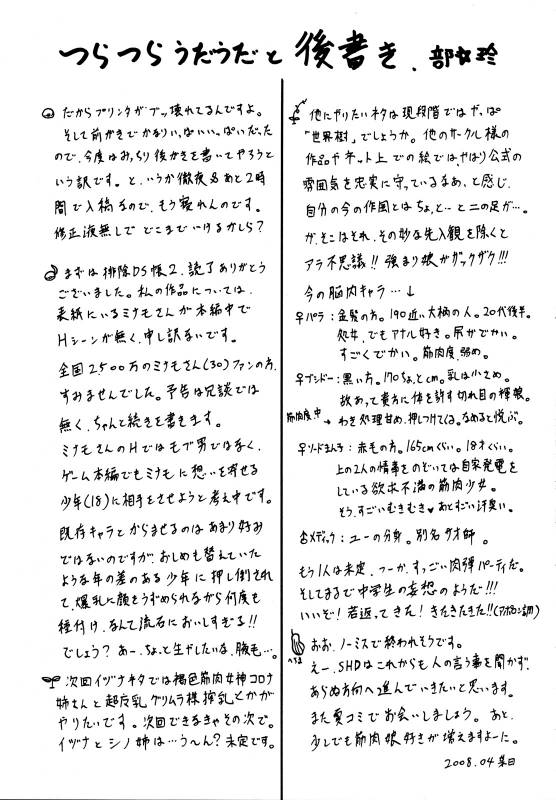 つらつらうだうだと後書き、部女玲
だからプリンタがブッ壊れてるんですよ。
そして前がきでかなりいっぱいいっぱいだった
ので、今度はみっちり後がきを書いてやろうと
いう訳です。と、いうか徹夜&あと2時
間で入稿なので、もう寝れんのです。
修正液無しでどこまでいけるかしら?
まずは排除DS帳2、読了ありがとう
ございました。私の作品については、
表紙にいるミナモさんが本編中で
Hシーンが無く、申し訳ないです。
全国2500万のミナモさん(30)ファンの方、
すみませんでした。予告は冗談では
無く、ちゃんと続きを書きます。
ミナモさんのHではモブ男ではなく、
ゲーム本編でもミナモに想いを寄せる
少年(18)に相手をさせようと考え中です。
既存キャラとからませるのはあまり好み
ではないのですが、おしめも替えていた
ような年の差のある少年に押し倒され
て、爆乳に顔をうずめられながら何度も
種付け、なんて流石においしすぎる!!
でしょう?あー、ちょっと生やしたいな、腋毛…。
次回イヅナネタでは褐色筋肉女神コロナ
姉さんと超反乳グリムラ様搾乳とかが
やりたいです。次回できなきゃその次で。
イヅナとシノ姉は…う〜ん?未定です。
他にやりたいネタは現段階ではやっぱ
「世界樹」でしょうか。他のサークル様の
作品やネット上での絵では、やはり公式の
雰囲気を忠実に守っているなあ、と感じ、
自分の今の作風とはちょっと…と二の足が…。
が、そこはそれ、その妙な先入観を除くと
アラ不思議!!強まり娘がザックザク!!!
今の脳内キャラ…↓
♀パラ:金髪の方。190近い大柄の人。20代後半。
処女、でもアナル好き。尻がでかい。
すごくでかい。筋肉度、弱め。
♀ブシドー:黒い方。170ちょっとcm。乳は小さめ。
故あって貴方に体を許す切れ目の褌娘。
筋肉度中
→わき処理甘め、押しつけてくる。なめると悦ぶ。
♀ソードまんろ:赤毛の方。165cmくらい。18才くらい。
上の2人の情事をのぞいては自家発電を
している欲求不満の筋肉少女。
そう、すごいむきむき♥あとすごい汗臭い。
♂メディック:ユーの分身。別名サオ師。
もう1人は未定、つーか、すっごい肉弾パーティだ。
そしてまるで中学生の妄想のようだ!!!
いいぞ!若返ってきた!きたきたきた!!
おお、ノーミスで終われそうです。
えー、SHDはこれからも人の言う事を聞かず、
あらぬ方向へ進んでいきたいと思います。
また夏コミでお会いしましょう。あと、
少しでも筋肉娘好きが増えますよーに。
2008.04某日